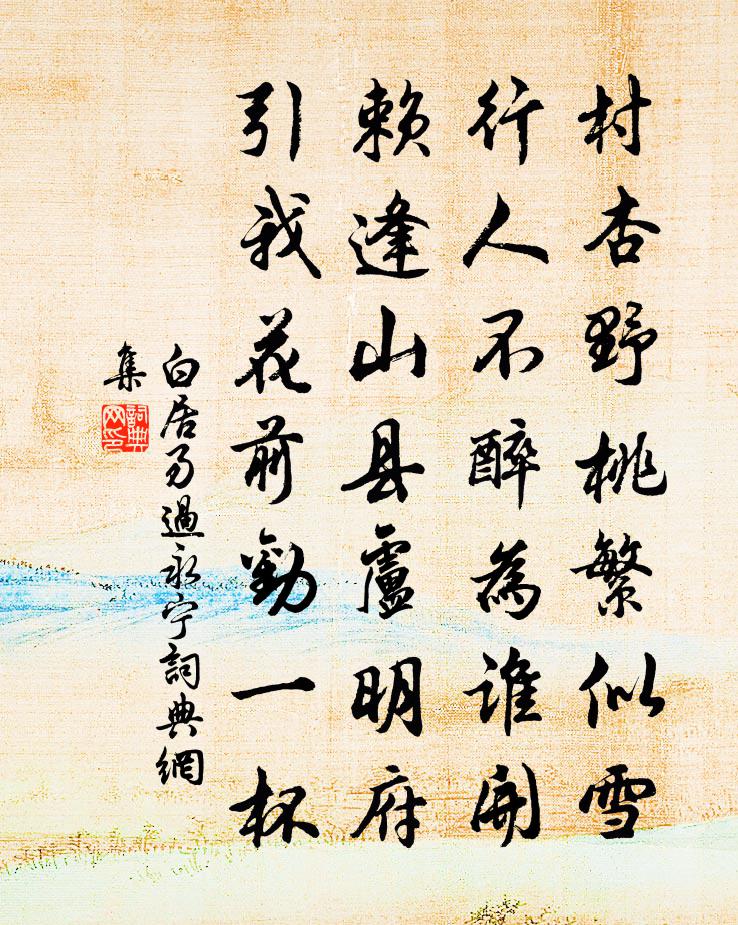 村杏野桃繁似雪
行人不醉為谁開
赖逢山县盧明府
引我花前勸一杯
白居易過永宁詞典網
集
詞典
网印